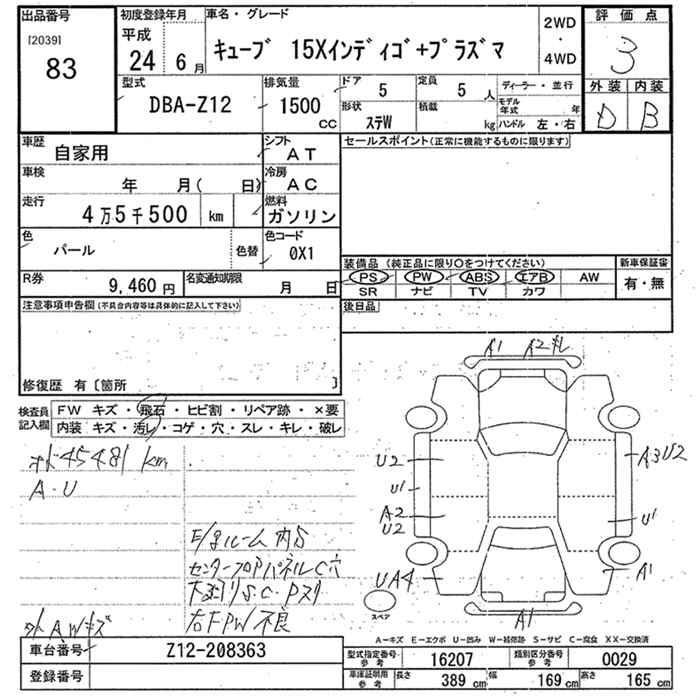 出品番号
[2039]
83
初度登録年月
平成
24 6月
車名・グレード
キューブ 15Xインディゴ+プラズマ
2WD
・
4WD
評価点
3
外装 内装
D B
型式
DBA-Z12
排気量
1500
CC
ドア
5
定員
5人
形状
ステW
積載
kg
ディーラー・並行
モデル年式 年
ハンドル 左・右
車歴
自家用
シフト
AT
車検
年 月( 日)
冷房
AC
走行
4万5千500 km
燃料
ガソリン
色
パール
色替
色コード
0X1
R券
9,460円
名変通知期限
月 日
セールスポイント(正常に機能するものに限ります)
装備品(純正品に限り○をつけてください)
PS PW ABS エアB AW
SR ナビ TV カワ
新車保証書
有・無
後日品
注意事項申告欄(不具合内容等は具体的に記入して下さい)
修復歴 有〔箇所 〕
検査員
記入欄
FW キズ・飛石・ヒビ割・リペア跡・×要
内装 キズ・汚レ・コゲ・穴・スレ・キレ・破レ
45481km
A・U
E/gルーム内S
センターフロアパネルC穴
下廻りS・C・Pスリ
右FPW不良
外A,Wキズ
A1 A2
U2
U1
A2
U2
UA4
A3U2
U1
A1
A1
スペア
A−キズ E−エクボ U−凹み W−補修跡 S−サビ C−腐食 XX−交換済
車台番号
Z12-208363
登録番号
型式指定番号
参考
16207
類別区分番号
参考
0029
車庫証明用
参考
長さ 389cm 幅 169cm 高さ 165cm